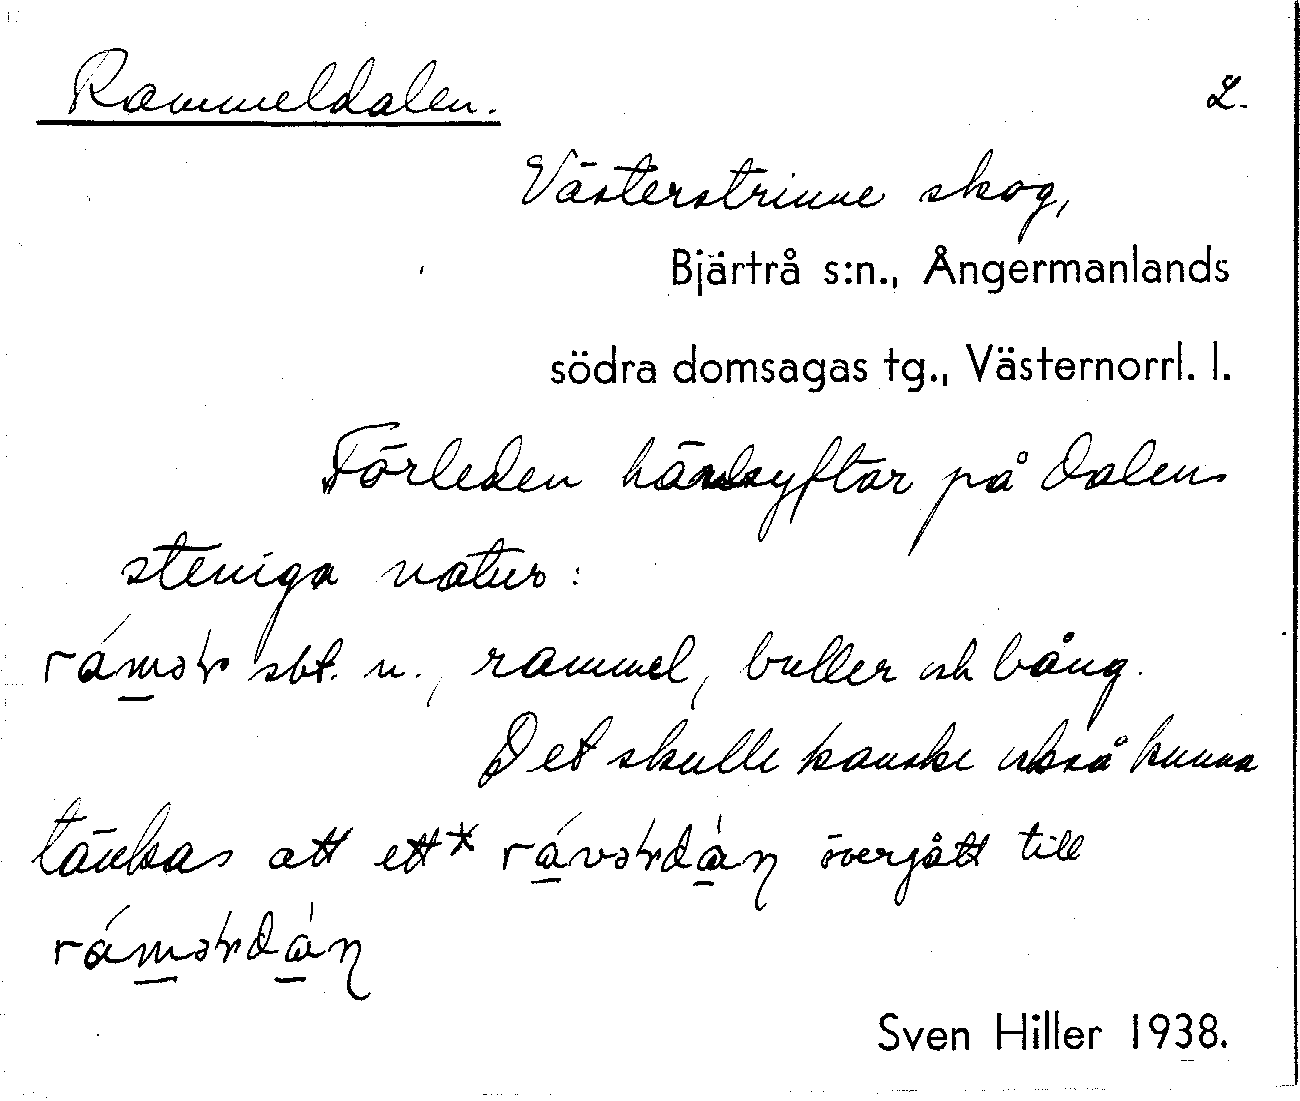 Rammeldalen. 2.
Västerstrinne skog,
Bjärtrå s:n., Ångermanlands
södra domsagas tg., Västernorrl. l.
Förleden händsyftar på dalens
steniga natur:
sbt. n., rammel, buller och bång.
Det skulle kanske också kunna
tänkas att ett* övergått till
Sven Hiller 1938.